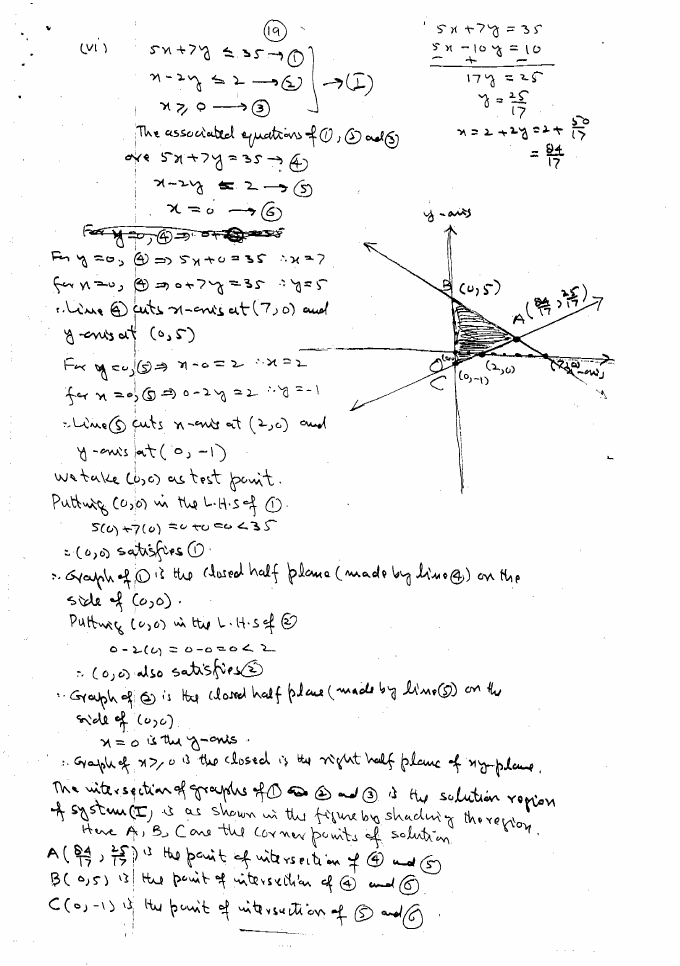 19
(vi) 5x+7y ≤ 35 → ①
x-2y ≤ 2 → ②
x ≥ 0 → ③
→ (I)
The associated equations of ①, ② and ③
are 5x+7y = 35 → ④
x-2y = 2 → ⑤
x = 0 → ⑥
5x+7y = 35
5x-10y = 10
- + -
17y = 25
y = 25/17
x = 2+2y = 2+ 50/17
= 84/17
For y=0, ④ ⇒ 5x+0=35 ∴x=7
for x=0, ④ ⇒ 0+7y=35 ∴y=5
∴ Line ④ cuts x-axis at (7,0) and
y-axis at (0,5)
For y=0, ⑤ ⇒ x-0=2 ∴x=2
for x=0, ⑤ ⇒ 0-2y=2 ∴y=-1
∴ Line ⑤ cuts x-axis at (2,0) and
y-axis at (0,-1)
y-axis
B (0,5)
A (84/17, 25/17)
O
C (0,-1)
(2,0)
(7,0)
x-axis
We take (0,0) as test point.
Putting (0,0) in the L.H.S of ①.
5(0)+7(0) =0+0=0<35
∴ (0,0) satisfies ①.
∴ Graph of ① is the closed half plane (made by line ④) on the
side of (0,0).
Putting (0,0) in the L.H.S of ②
0-2(0) = 0-0=0<2
∴ (0,0) also satisfies ②
∴ Graph of ② is the closed half plane (made by line ⑤) on the
side of (0,0)
x=0 is the y-axis.
∴ Graph of x≥0 is the closed is the right half plane of xy-plane.
The intersection of graphs of ① ② and ③ is the solution region
of system (I) is as shown in the figure by shading the region.
Here A, B, C are the corner points of solution
A (84/17, 25/17) is the point of intersection of ④ and ⑤
B (0,5) is the point of intersection of ④ and ⑥
C (0,-1) is the point of intersection of ⑤ and ⑥